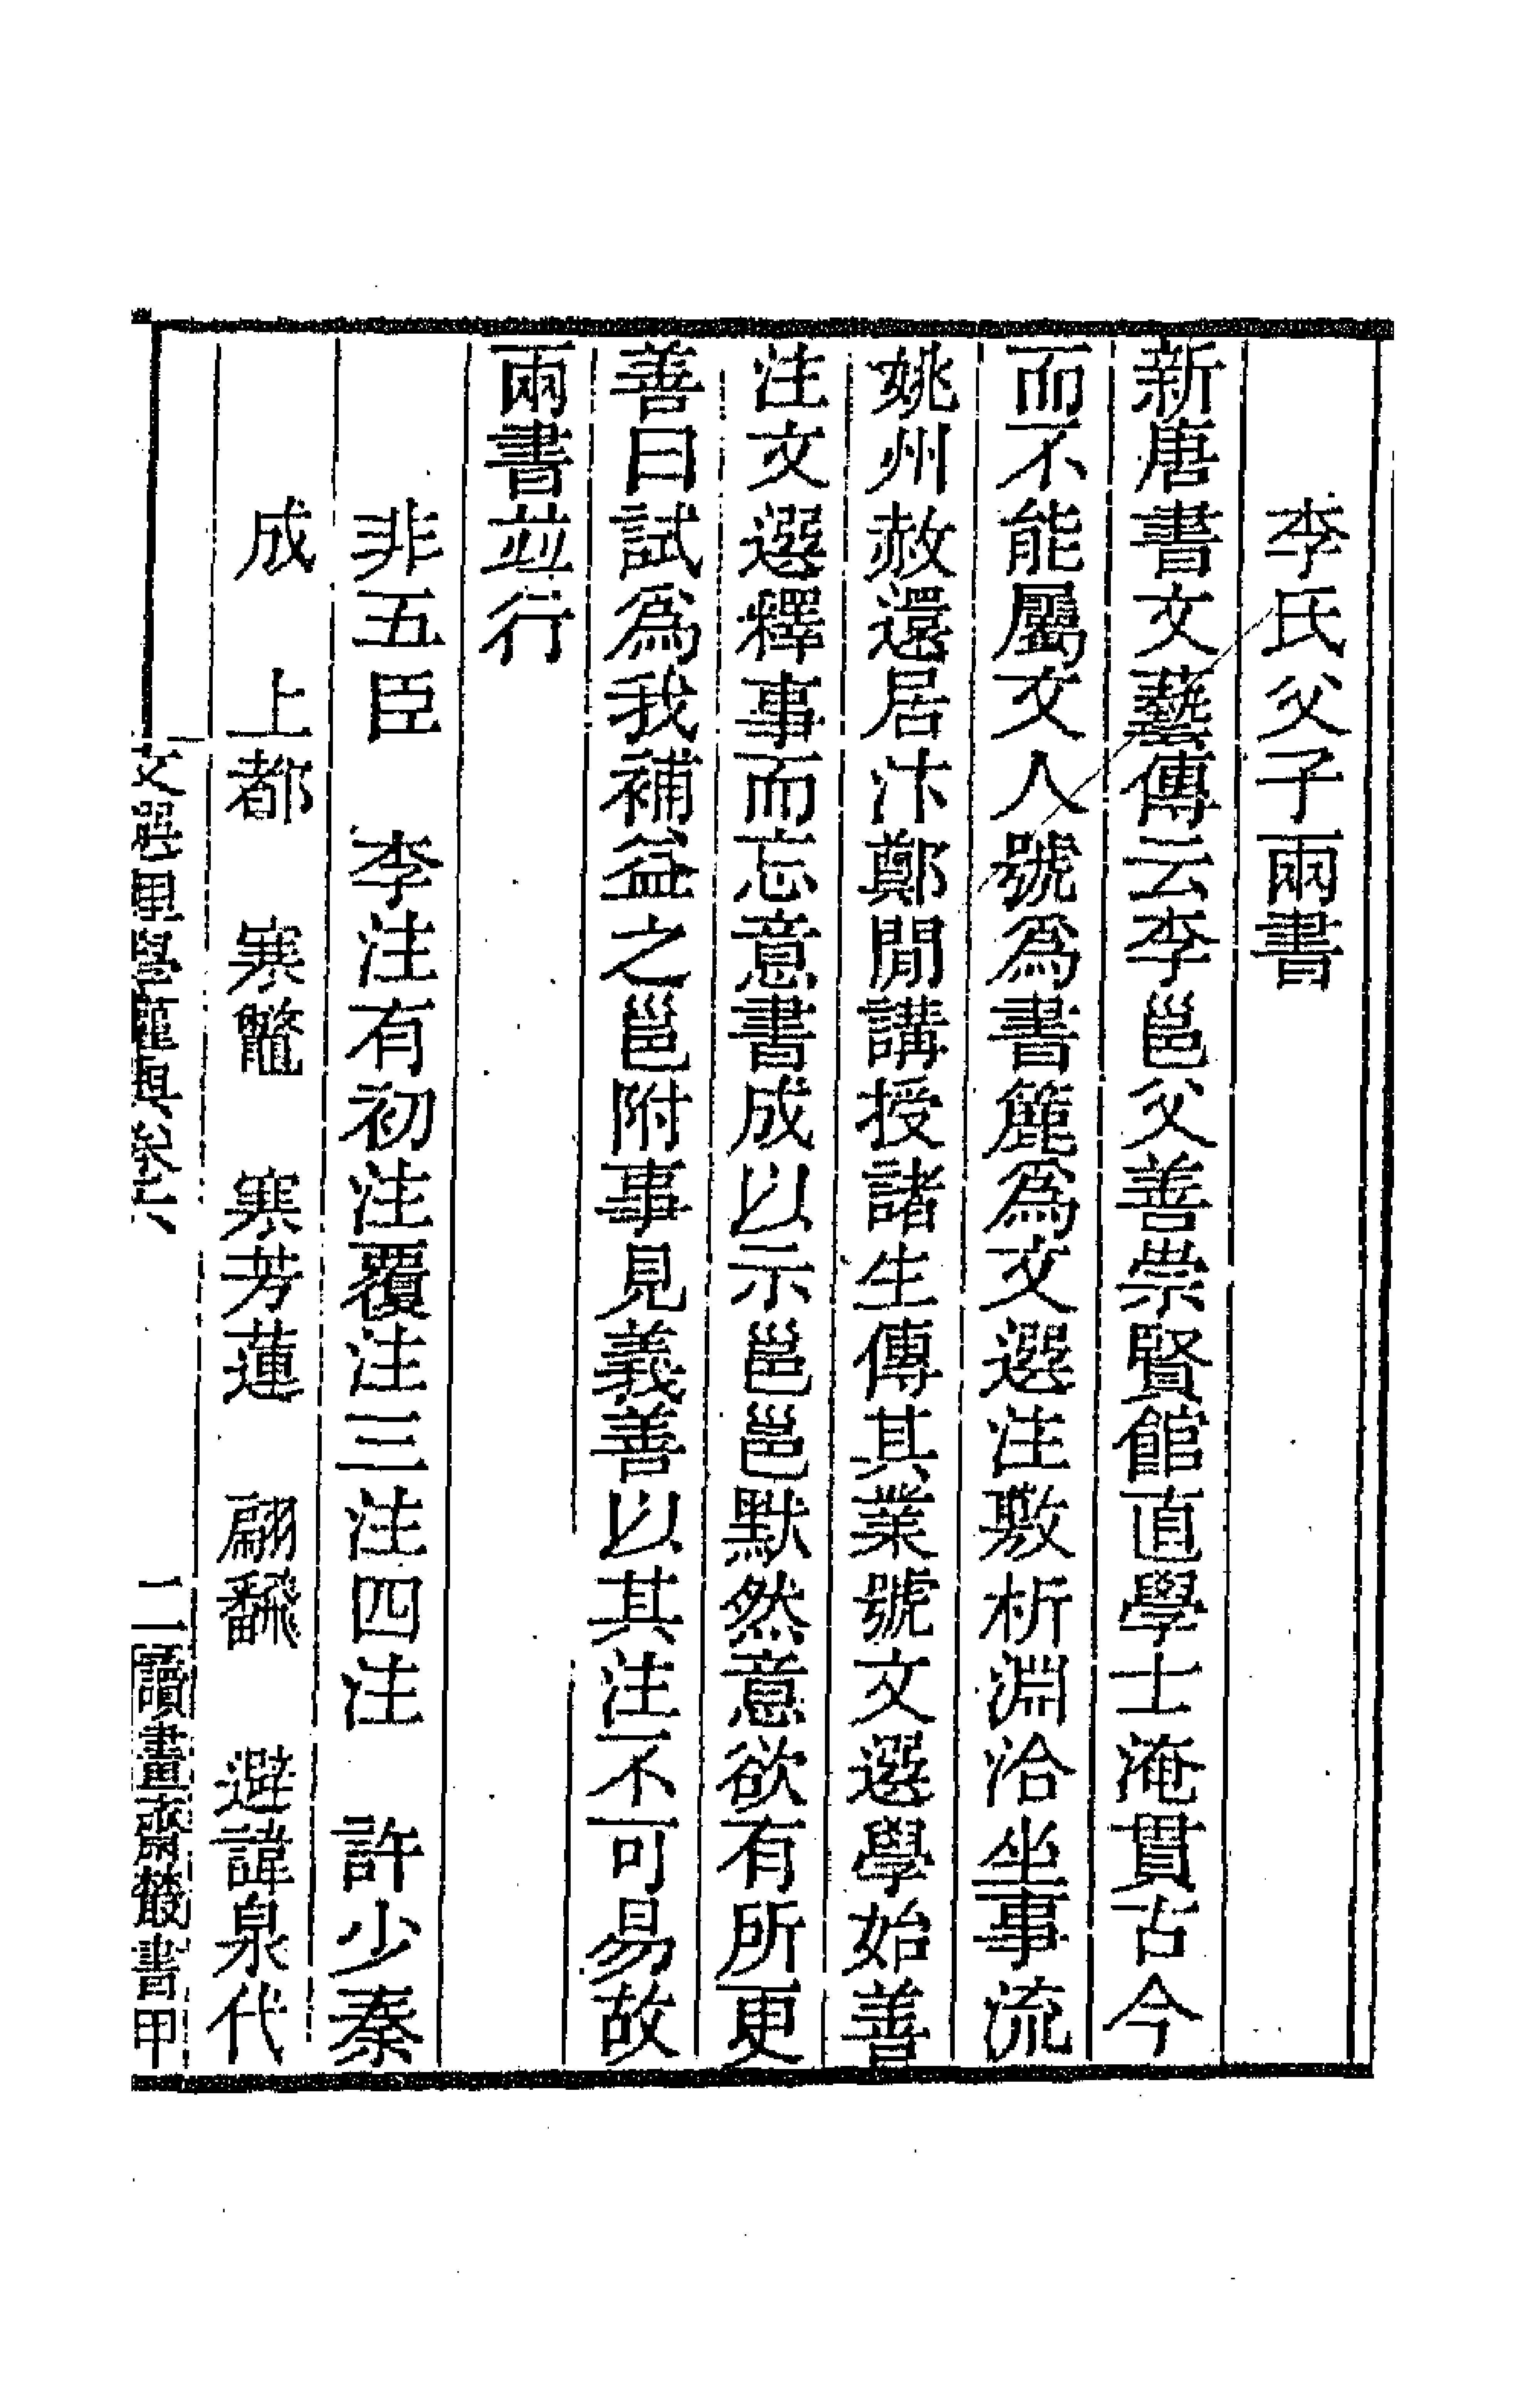 李氏父子兩書
新唐書文藝傳云李邕父善崇賢館直學士淹貫古今
而不能屬文人號爲書簏爲文選注敷析淵洽坐事流
姚州赦還居汴鄭閒講授諸生傳其業號文選學始善
注文選釋事而忘意書成以示邕邕默然意欲有所更
善曰試爲我補益之邕附事見義善以其注不可易故
兩書並行
非五臣　李注有初注覆注三注四注　許少秦
成　上都　寒鼈　寒芳蓮　翩飜　避諱泉代
文選理學權輿卷八　二　讀畫齋叢書甲